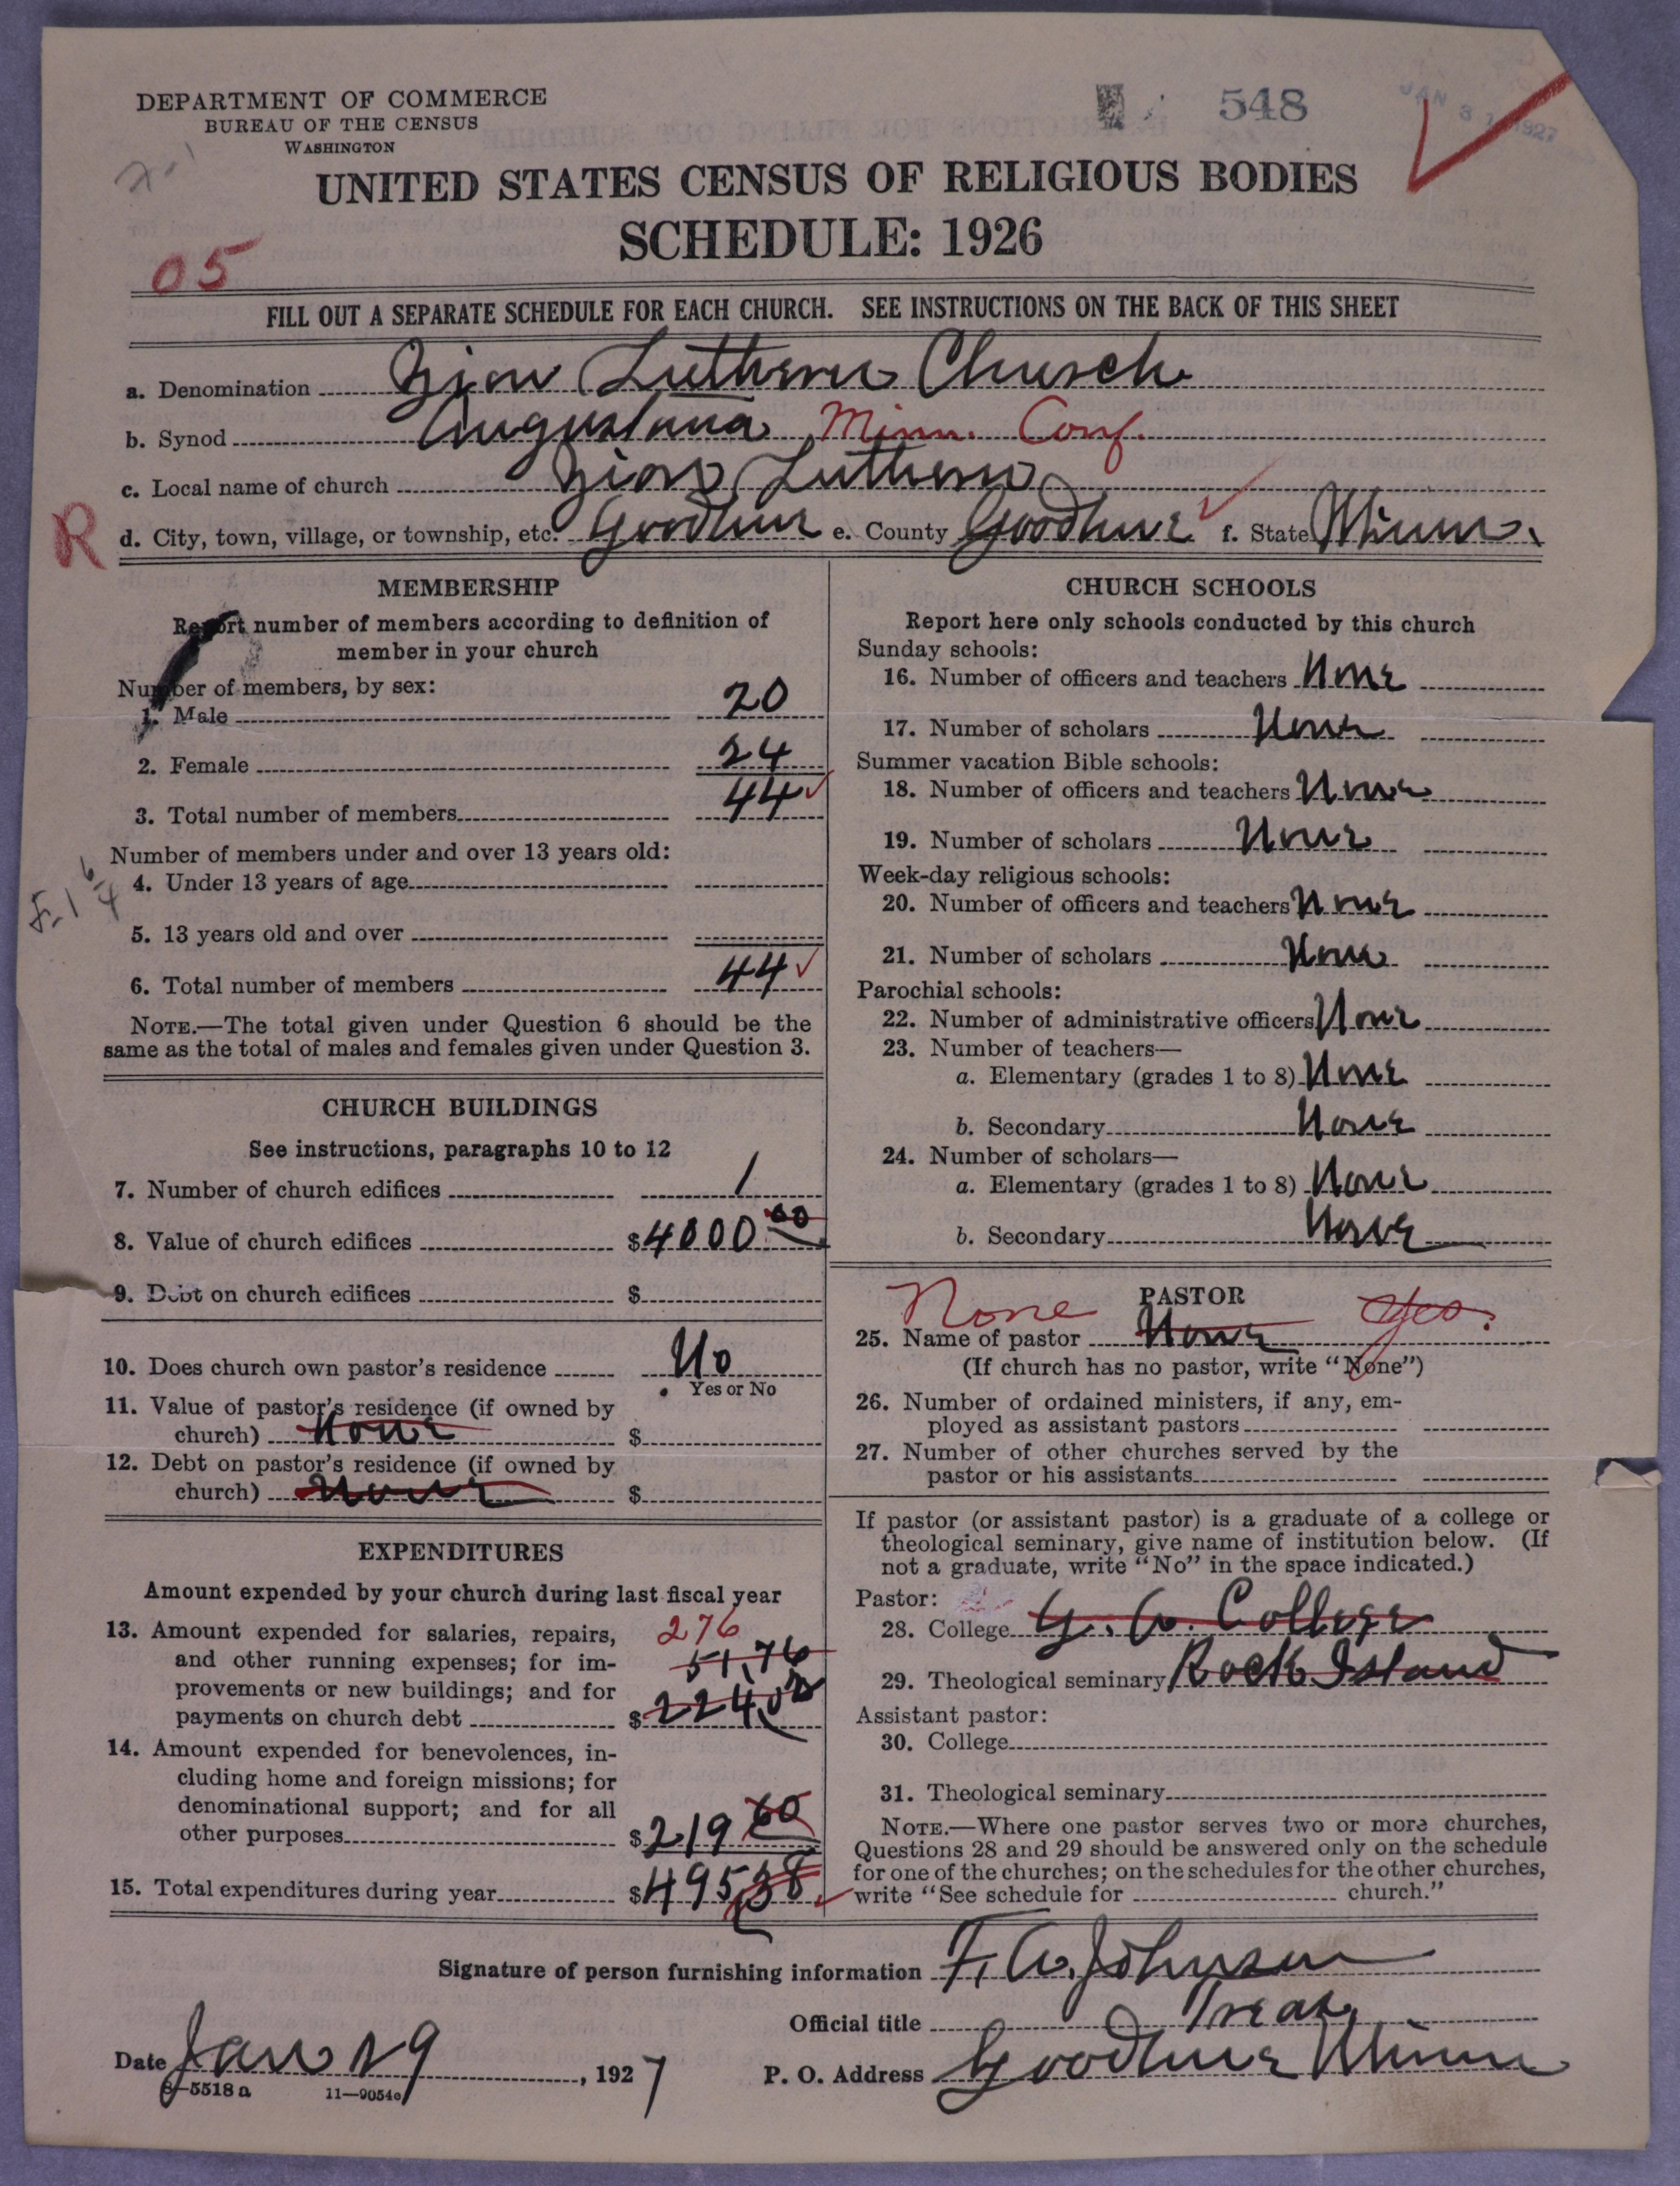 DEPARTMENT OF COMMERCE
BUREAU OF THE CENSUS
WASHINGTON
548
JAN 31 1927
UNITED STATES CENSUS OF RELIGIOUS BODIES
SCHEDULE: 1926
05
FILL OUT A SEPARATE SCHEDULE FOR EACH CHURCH. SEE INSTRUCTIONS ON THE BACK OF THIS SHEET
a. Denomination Zion Lutheran Church
b. Synod Augustana Minn. Conf.
c. Local name of church Zion Lutheran
R
d. City, town, village, or township, etc. Goodhue e. County Goodhue f. State Minn.
MEMBERSHIP
Report number of members according to definition of
member in your church
Number of members, by sex:
1. Male 20
2. Female 24
3. Total number of members 44
Number of members under and over 13 years old:
4. Under 13 years of age
5. 13 years old and over
6. Total number of members 44
NOTE.—The total given under Question 6 should be the
same as the total of males and females given under Question 3.
CHURCH BUILDINGS
See instructions, paragraphs 10 to 12
7. Number of church edifices 1
8. Value of church edifices $4000.00
9. Debt on church edifices $
10. Does church own pastor's residence No
Yes or No
11. Value of pastor's residence (if owned by
church) None $
12. Debt on pastor's residence (if owned by
church) None $
EXPENDITURES
Amount expended by your church during last fiscal year
13. Amount expended for salaries, repairs, 276
and other running expenses; for im- 51,76
provements or new buildings; and for
payments on church debt $224,02
14. Amount expended for benevolences, in-
cluding home and foreign missions; for
denominational support; and for all
other purposes $219 60
15. Total expenditures during year $495,38
CHURCH SCHOOLS
Report here only schools conducted by this church
Sunday schools:
16. Number of officers and teachers None
17. Number of scholars None
Summer vacation Bible schools:
18. Number of officers and teachers None
19. Number of scholars None
Week-day religious schools:
20. Number of officers and teachers None
21. Number of scholars None
Parochial schools:
22. Number of administrative officers None
23. Number of teachers—
a. Elementary (grades 1 to 8) None
b. Secondary None
24. Number of scholars—
a. Elementary (grades 1 to 8) None
b. Secondary None
PASTOR
None yes.
25. Name of pastor None
(If church has no pastor, write "None")
26. Number of ordained ministers, if any, em-
ployed as assistant pastors
27. Number of other churches served by the
pastor or his assistants
If pastor (or assistant pastor) is a graduate of a college or
theological seminary, give name of institution below. (If
not a graduate, write "No" in the space indicated.)
Pastor:
28. College G. A. College
29. Theological seminary Rock Island
Assistant pastor:
30. College
31. Theological seminary
NOTE.—Where one pastor serves two or more churches,
Questions 28 and 29 should be answered only on the schedule
for one of the churches; on the schedules for the other churches,
write "See schedule for church."
Signature of person furnishing information F. A. Johnson
Official title Treas.
Date Jan 29, 1927 P. O. Address Goodhue Minn
8—5518a 11—9054